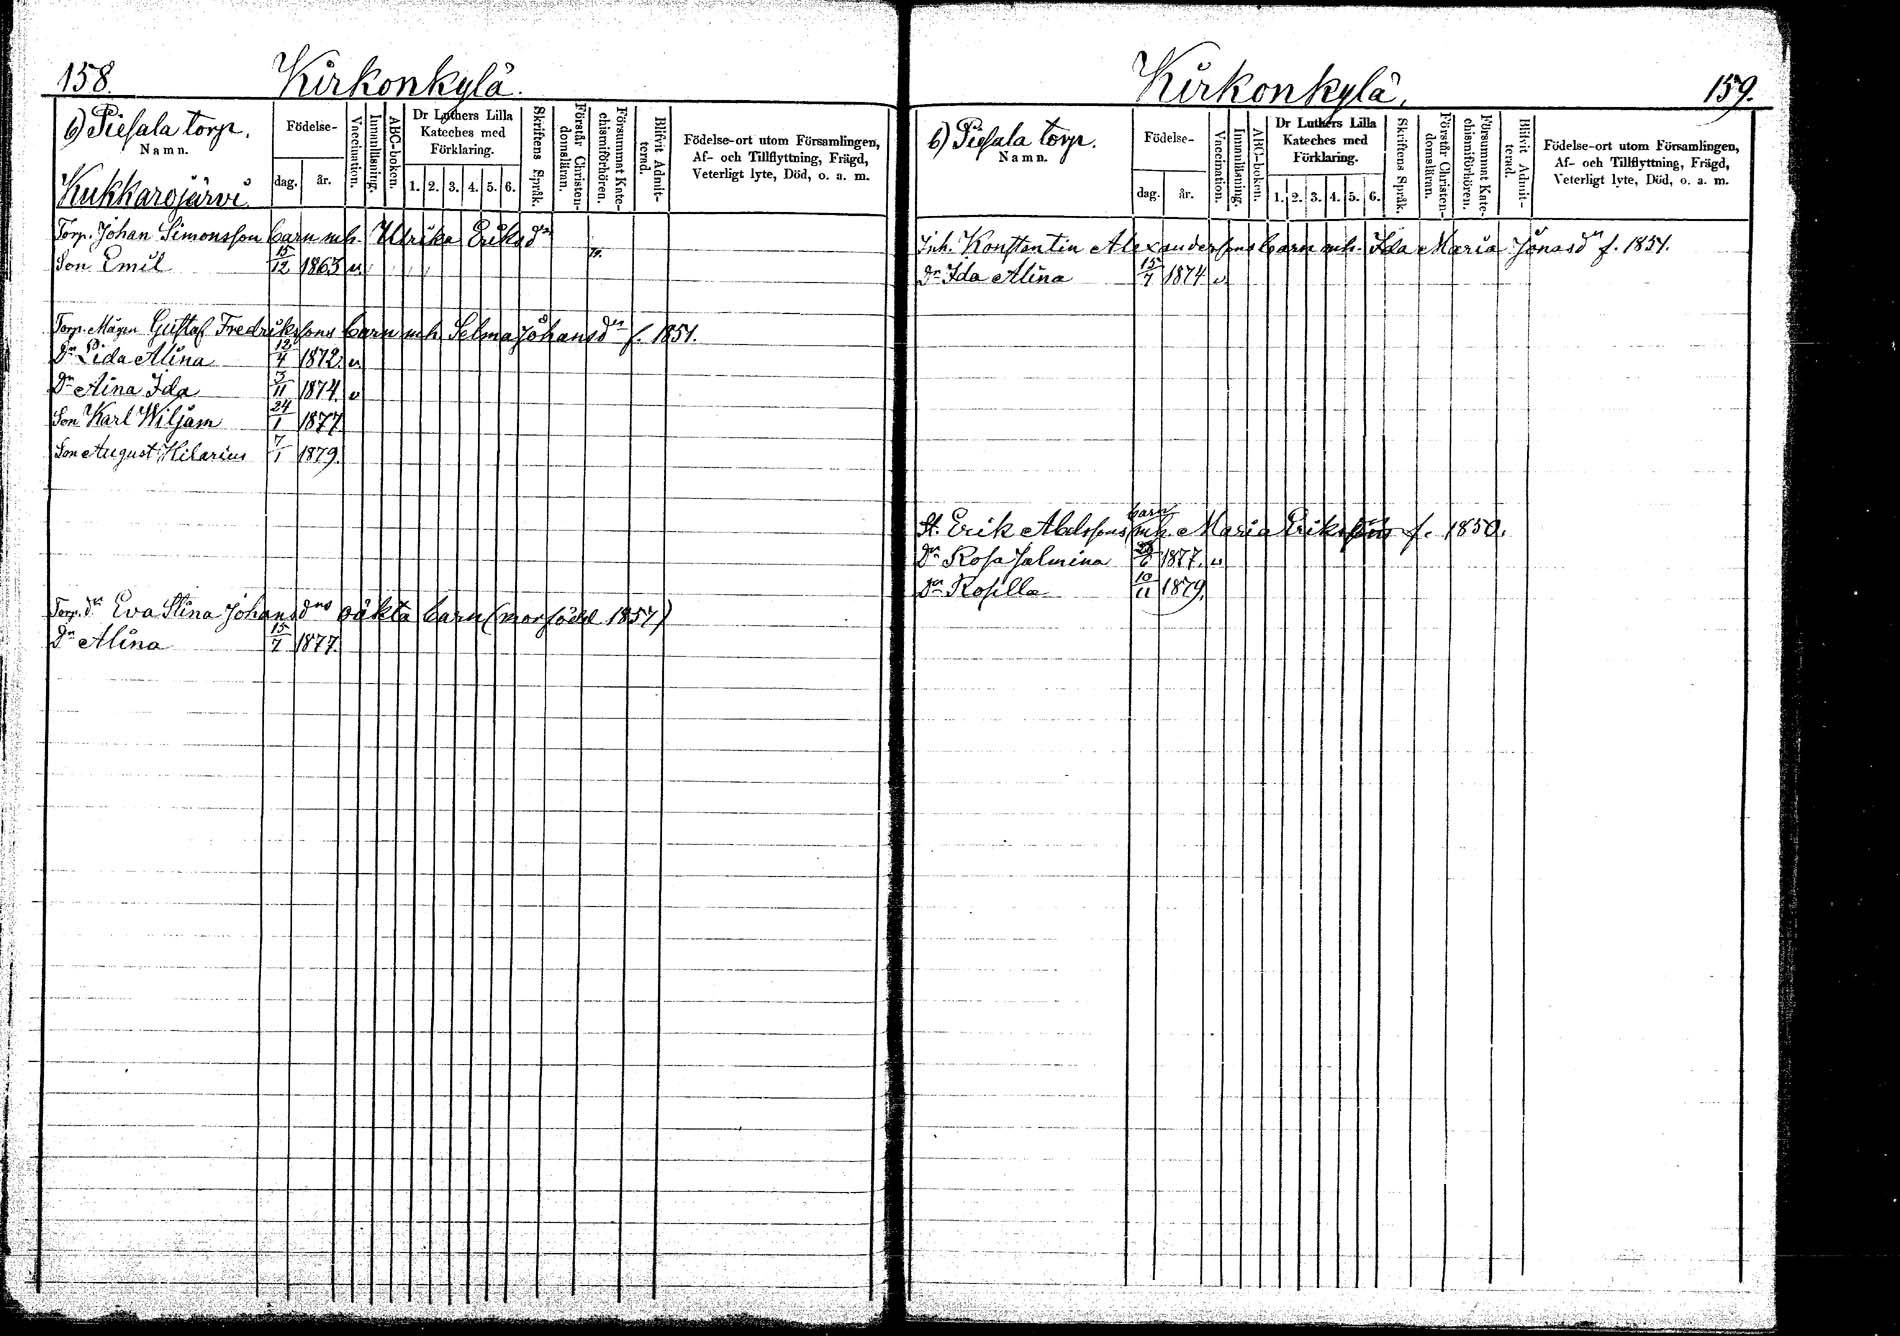 158.
Kirkonkylä.
6) Piesala torp.
Namn.
Kukkarojärvi
Födelse-
dag. år.
Vaccination.
Innanläsning.
ABC-boken.
Dr Luthers Lilla
Kateches med
Förklaring.
1. 2. 3. 4. 5. 6.
Skriftens Språk.
Förstår Christen-
domsläran.
Försummat Kate-
chismiförhören.
Blifvit Admit-
terad.
Födelse-ort utom Församlingen,
Af- och Tillflyttning, Frägd,
Veterligt lyte, Död, o. a. m.
Torp. Johan Simonsson barn mh. Ulrika Eriksdr
Son Emil 15/12 1863 v. 79.
Torp. Mågen Gustaf Fredrikssons barn mh. Selma Johansdr f. 1851.
Dr Lida Alina 12/4 1872. v.
Dr Aina Ida 3/11 1874. v
Son Karl Wiljam 24/1 1877
Son August Hilarius 7/1 1879.
Torp. dr Eva Stina Johansdrs oäkta barn (mor född 1857)
Dr Alina 15/7 1877.
Kirkonkylä.
159.
6) Piesala torp.
Namn.
Födelse-
dag. år.
Vaccination.
Innanläsning.
ABC-boken.
Dr Luthers Lilla
Kateches med
Förklaring.
1. 2. 3. 4. 5. 6.
Skriftens Språk.
Förstår Christen-
domsläran.
Försummat Kate-
chismiförhören.
Blifvit Admit-
terad.
Födelse-ort utom Församlingen,
Af- och Tillflyttning, Frägd,
Veterligt lyte, Död, o. a. m.
Inh. Konstantin Alexanderssons barn mh. Ida Maria Jonasdr f. 1851.
Dr Ida Alina 15/7 1874 v.
barn
St. Erik Abelssons mh. Maria Eriks f. 1850.
Dr Rosa Jalmina 1877. v
Dr Rosilla 10/11 1879.